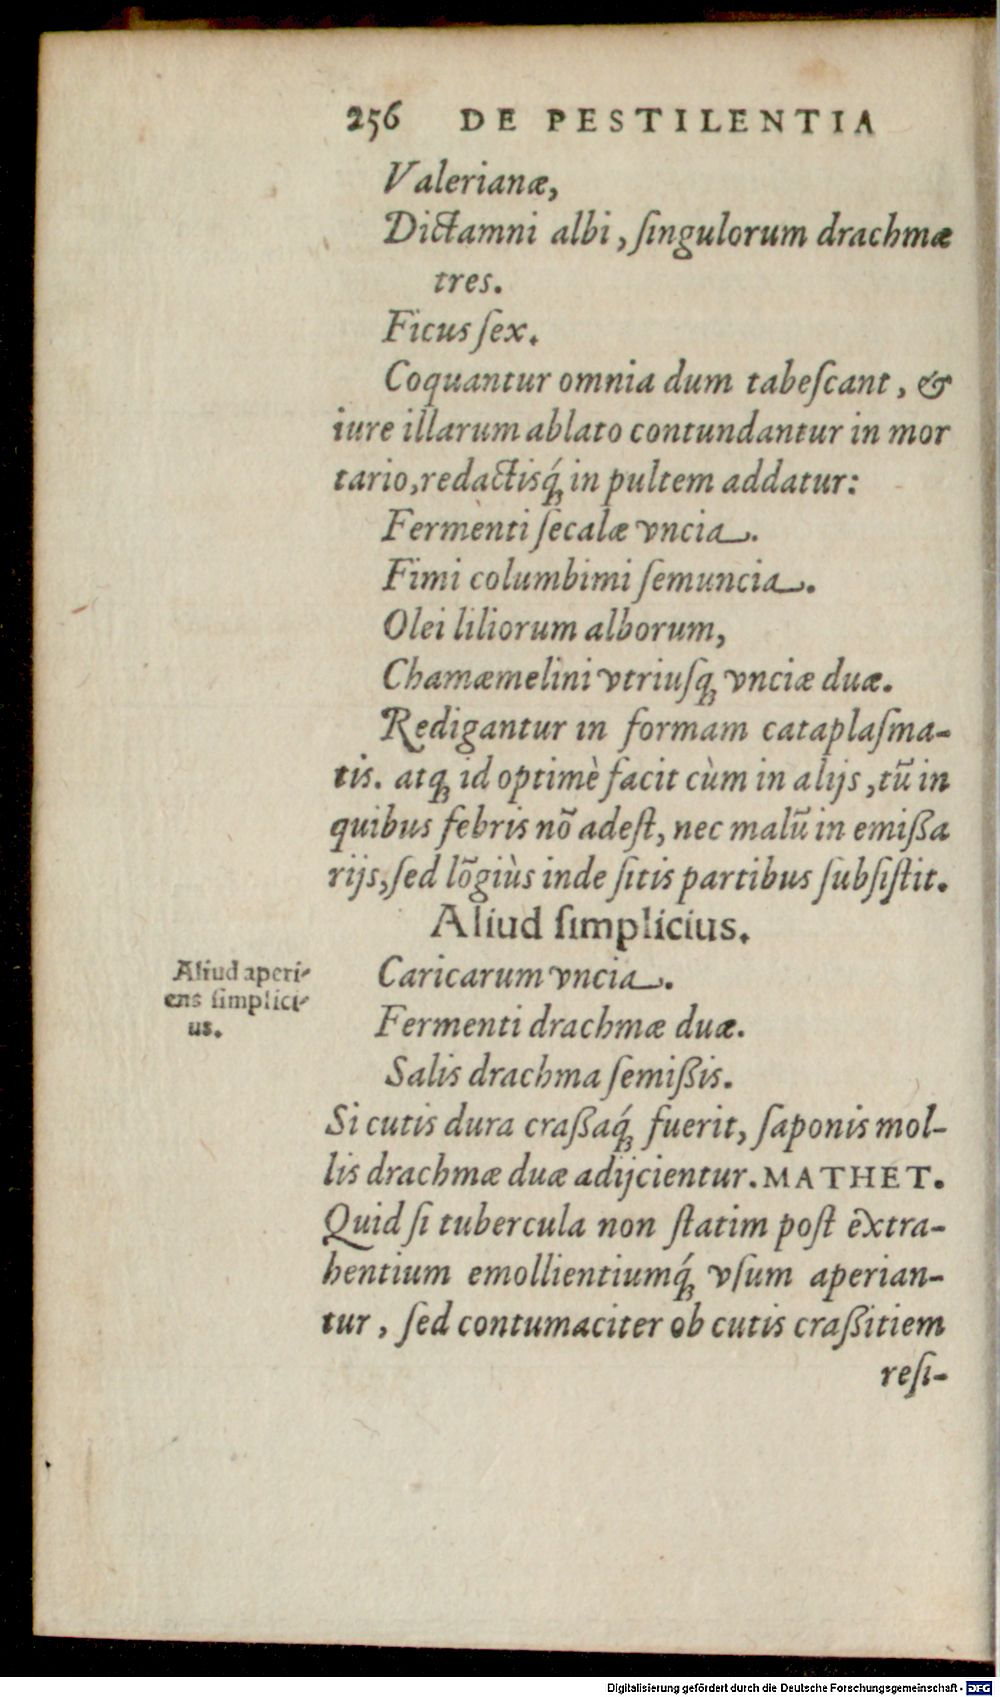 256 DE PESTILENTIA
Valerianæ,
Dictamni albi, ſingulorum drachmæ
tres.
Ficus ſex.
Coquantur omnia dum tabeſcant, &
iure illarum ablato contundantur in mor
tario, redactisq́; in pultem addatur:
Fermenti ſecalæ vncia.
Fimi columbimi ſemuncia.
Olei liliorum alborum,
Chamæmelini vtriuſq; vnciæ duæ.
Redigantur in formam cataplaſma-
tis. atq; id optimè facit cùm in alijs, tũ in
quibus febris nõ adeſt, nec malũ in emißa
rijs, ſed lõgiùs inde ſitis partibus ſubſiſtit.
Aliud ſimplicius.
Aliud aperi-
ens ſimplici-
us.
Caricarum vncia.
Fermenti drachmæ duæ.
Salis drachma ſemißis.
Si cutis dura craßaq́; fuerit, ſaponis mol-
lis drachmæ duæ adijcientur. MATHET.
Quid ſi tubercula non ſtatim poſt extra-
hentium emollientiumq́; vſum aperian-
tur, ſed contumaciter ob cutis craßitiem
reſi-
Digitalisierung gefördert durch die Deutsche Forschungsgemeinschaft - DFG